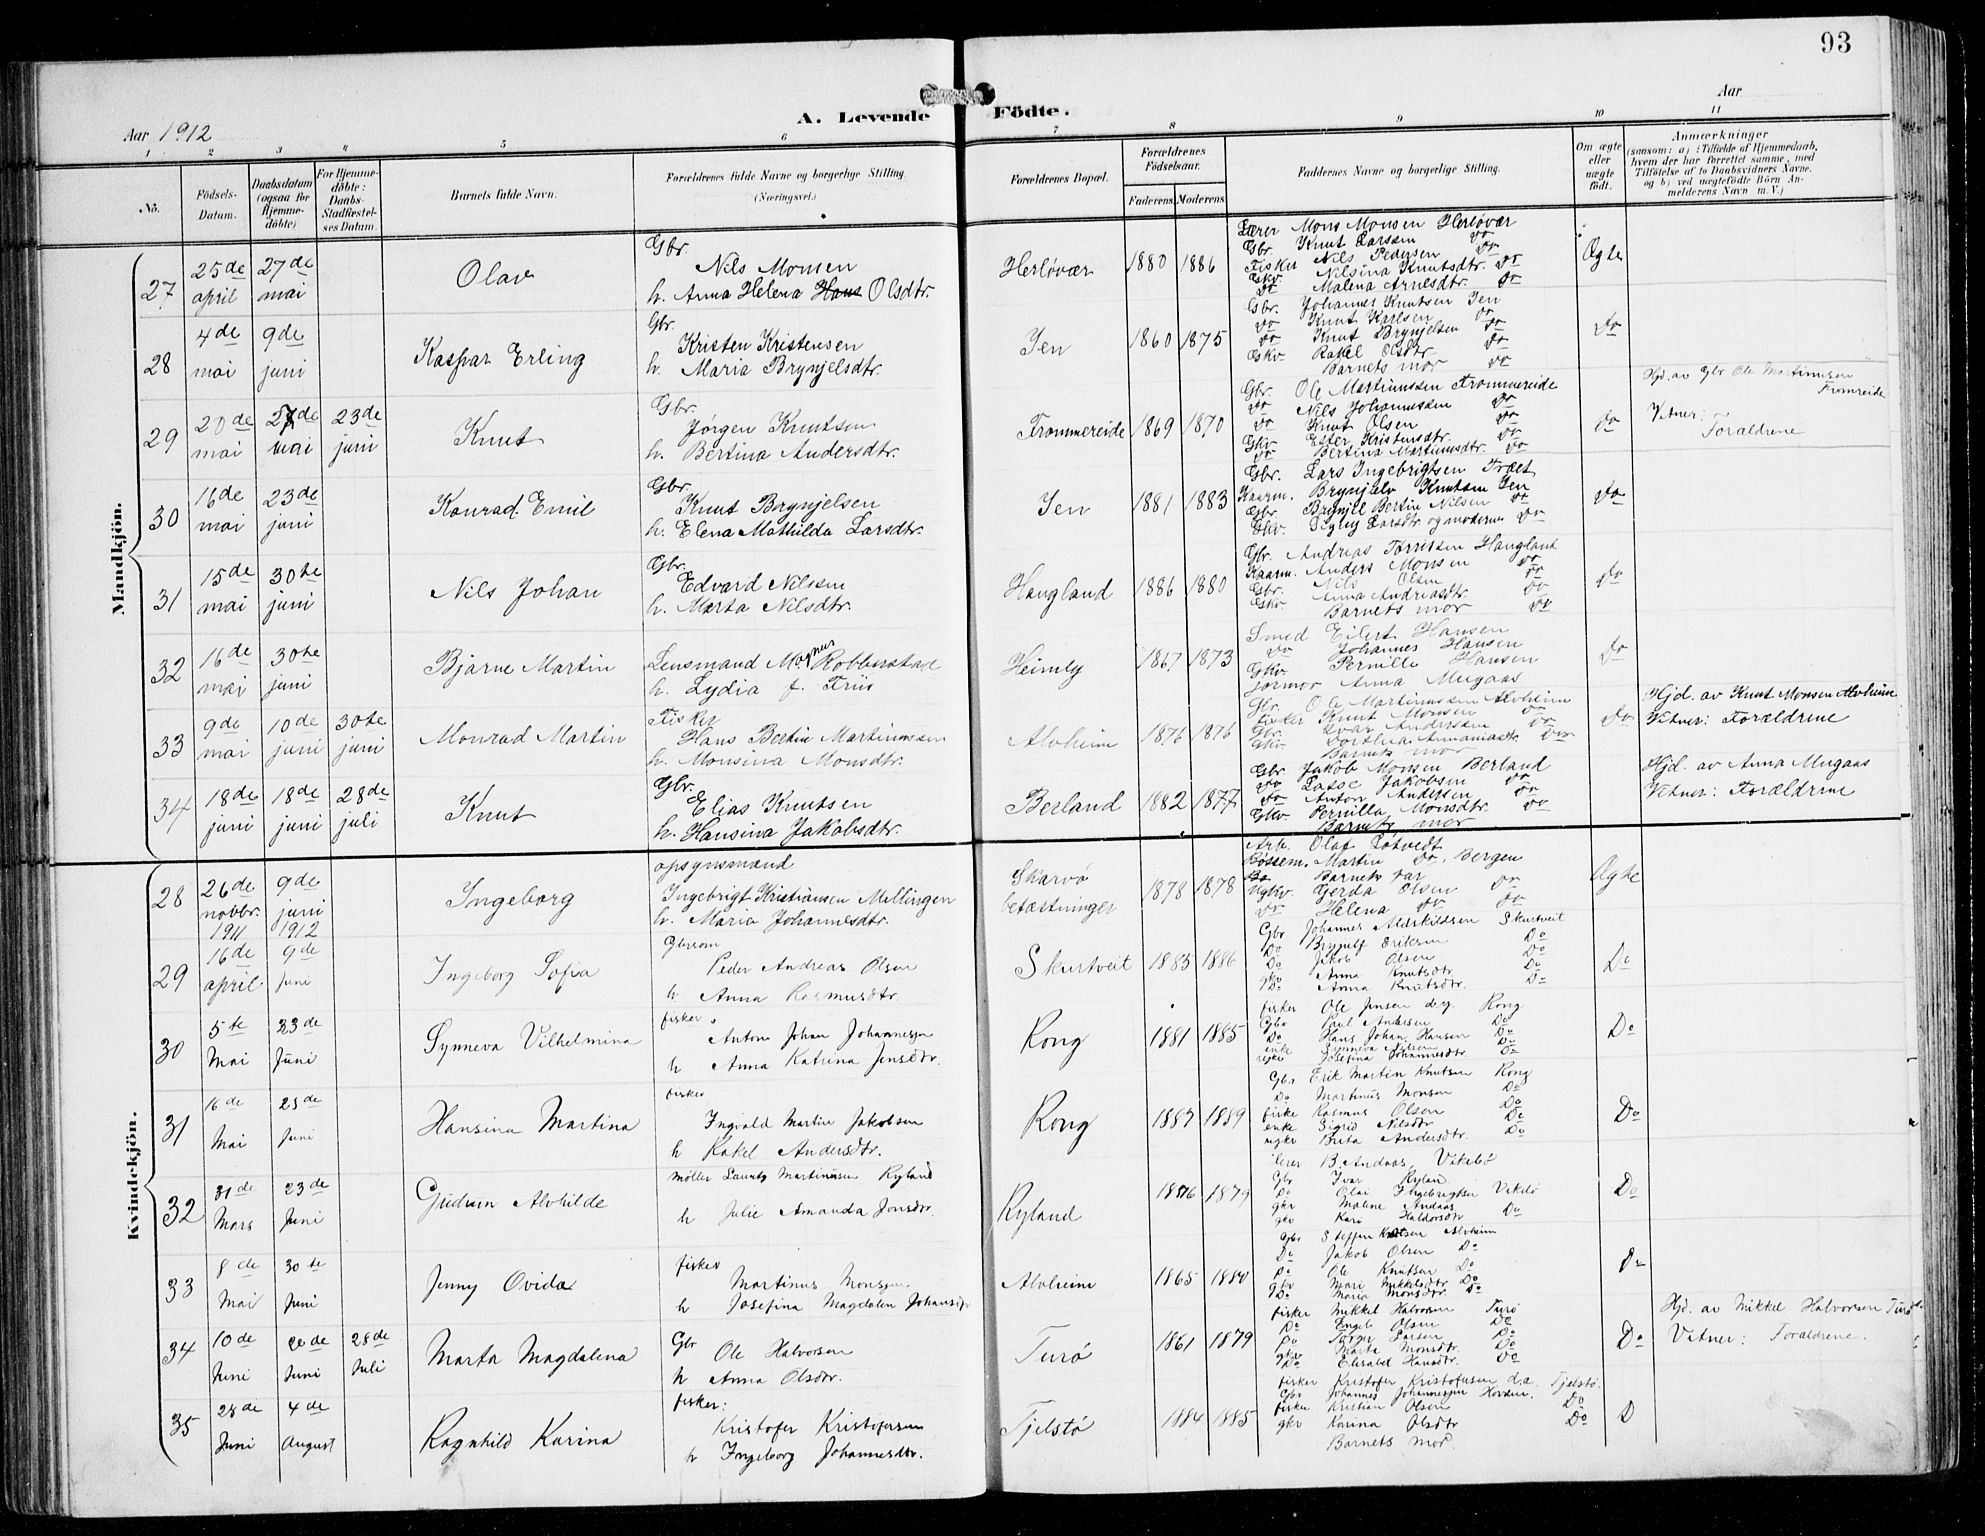 93
Aar 1912
A. Levende Födte.
Aar
1 2 3 4 5 6 7 8 9 10 11
No.
Födsels-Datum.
Daabsdatum (ogsaa for Hjemmedöbte)
For Hjemmedöbte: Daabs-Stadfæstelses Datum.
Barnets fulde Navn.
Forældrenes fulde Navne og borgerlige Stilling. (Næringsvei.)
Forældrenes Bopæl.
Forældrenes Födselsaar.
Faderens. Moderens.
Faddernes Navne og borgerlige Stilling.
Om ægte eller uægte födt.
Anmærkninger
(saasom: a) i Tilfælde af Hjemmedaab, hvem der har forrettet samme, med Tilföielse af to Daabsvidners Navne, og b) ved uægtefödte Börn Anmelderens Navn m. V.)
Mandkjön.
27 25de april 27de mai Olav
Gbr. Nils Monsen
h. Anna Helena Hans Olsdtr.
Herløvær 1880 1886
Lærer Mons Monsen Herløvær
Gbr. Knut Larssen do
Fisker Nils Pedersen do
Gkv. Nilsina Knutsdtr. do
do Malena Arnesdtr. do
Ægte
28 4de mai 9de juni Kaspar Erling
Gbr. Kristen Kristensen
h. Maria Brynjelsdtr.
Jen 1860 1875
Gbr. Johannes Knutsen Jen
do Knut Karlsen do
do Knut Brynjelsen do
Gkv. Rakel Olsdtr. do
Barnets mor do
do
29 20de mai 27de mai 23de juni Knut
Gbr. Jørgen Knutsen
h. Bertina Andersdtr.
Frommereide 1869 1870
Gbr. Ole Martinussen Frommereide
do Nils Johannessen do
do Knut Olsen do
Gkv. Ester Kristensdtr. do
do Bertina Martinusdtr. do
do
Hjd. av Gbr Ole Martinusen Fromreide
Vitner: Forældrene
30 16de mai 23de juni Konrad Emil
Gbr. Knut Brynjelsen
h. Elena Mathilda Larsdtr.
Jen 1881 1883
Gbr. Lars Ingebrigtsen Træet
Kaarm. Brynjulv Knutsen Jen
Gbr. Brynjel Bertin Nilsen do
Gkv. Signy Larsdtr og moderen do
do
31 15de mai 30te juni Nils Johan
Gbr. Edvard Nilsen
h. Marta Nilsdtr.
Haugland 1886 1880
Gbr. Andreas Tørrissen Haugland
Kaarm. Anders Monsen do
Gbr. Nils Olsen do
Gkv Anna Andreasdtr do
Barnets mor do
do
32 16de mai 30te juni Bjarne Martin
Lensmand Magnus Robberstad
h. Lydia f. Friis
Heimly 1867 1873
Smed Eilert Hansen
do Johannes Hansen
Gkv. Pernille Hansen
jormor Anna Mugaas
do
33 9de mai 10de juni 30te juni Monrad Martin
Fisker Hans Bertin Martinussen
h. Monsina Monsdtr.
Alvheim 1876 1876
Gbr. Ole Martinussen Alvheim
fisker Knut Monsen do
Gbr. Ivar Anderssen do
Gkv. Dorthea Annaniasdtr. do
Barnets mor
do
Hjd. av Knut Monsen Alvheim
Vitner: Forældrene
34 18de juni 18de juni 28de juli Knut
Gbr. Elias Knutsen
h. Hansina Jakobsdtr.
Berland 1882 1877
Gbr. Jakob Monsen Berland
do Lasse Jakobsen do
do Anton Andersen do
Gkv. Pernilla Monsdtr. do
Barnets mor
Hjd. av Anna Mugaas
Vitner: Forældrene
Kvindekjön.
28 26de novbr. 1911 9de juni 1912 Ingeborg
opsynsmand Ingebrigt Kristiansen Mellingen
h. Maria Johannesdtr.
Skarvø befæstninger 1878 1878
Arb. Olaf Løtvedt
Bøssem. Martin do, Bergen
Barnets far
Ugkv. Gerda Olsen do
do Helena do do
Ægte
29 16de april 9de juni Ingeborg Sofia
Gbrsøn Peder Andreas Olsen
h Anna Rasmusdtr.
Skurtveit 1885 1886
Gbr Johannes Aldskildsen Skurtveit
Do Brynulf Eriksen Do
Do Jakob Olsen Do
gkv Anna Knutsdtr. Do
Do Anna Knutsdtr. Do
Do
30 5te Mai 23de Juni Synneva Vilhelmina
fisker Anton Johan Johannessen
h Anna Katrina Jensdtr.
Rong 1881 1885
fisker Ole Jensen d.y. Rong
Gbr Paul Andersen Do
Do Hans Johan Hansen Do
enke Synneva Nilsen Do
ugkv Josefina Johannesdtr. Do
Do
31 16de Mai 23de Juni Hansina Martina
fisker Ingvald Martin Jakobsen
h Rakel Andersdtr.
Rong 1887 1889
Gbr Erik Martin Knutsen Rong
Do Martinus Monsen Do
fiske Rasmus Olsen Do
enke Sigrid Nilsdtr Do
ugkv Brita Andersdtr. Do
Do
32 31de Mars 23de Juni Gudrun Alvhilde
møller Lauritz Martinusen Ryland
h Julie Amanda Jonsdtr.
Ryland 1876 1879
lærer B. Andaas, Vikebø
Gbr Ivar Ryland
Do Olai Ingebrigtsen Vikebø
gkv Maline Andaas Do
gkv Kari Haldorsdtr
Do
33 8de Mai 30te Juni Jenny Ovida
fisker Martinus Monsen
h Josefina Magdalen Johansdtr
Alvheim 1865 1880
Gbr Steffen Knutsen Alvheim
Do Jakob Olsen Do
Do Ole Knutsen Do
gkv Mari Mikkelsdtr Do
Do Maria Monsdtr. Do
Do
34 10de Juni 20de Juni 28de Juli Marta Magdalena
Gbr Ole Halvorsen
h Anna Olsdtr.
Turø 1861 1879
fisker Mikkel Halvorsen Turø
Do Engel Olsen Do
Do Torger Larsen Do
gkv Marta Monsdtr. Do
Do Elisabet Hansdtr. Do
Do
Hjd. av Mikkel Halvorsen Turø
Vitner: Forældrene.
35 28de Juni 4de August Ragnhild Karina
fisker: Kristofer Kristofersen
h Ingeborg Johannesdtr.
Tjelstø 1884 1885
fisker Kristofer Kristofersen d.e. Tjelstø.
Gbr Johannes Johannessen Hordem.
fisker Kristian Olsen Do
gkv Karina Olsdtr Do
Barnets mor
D